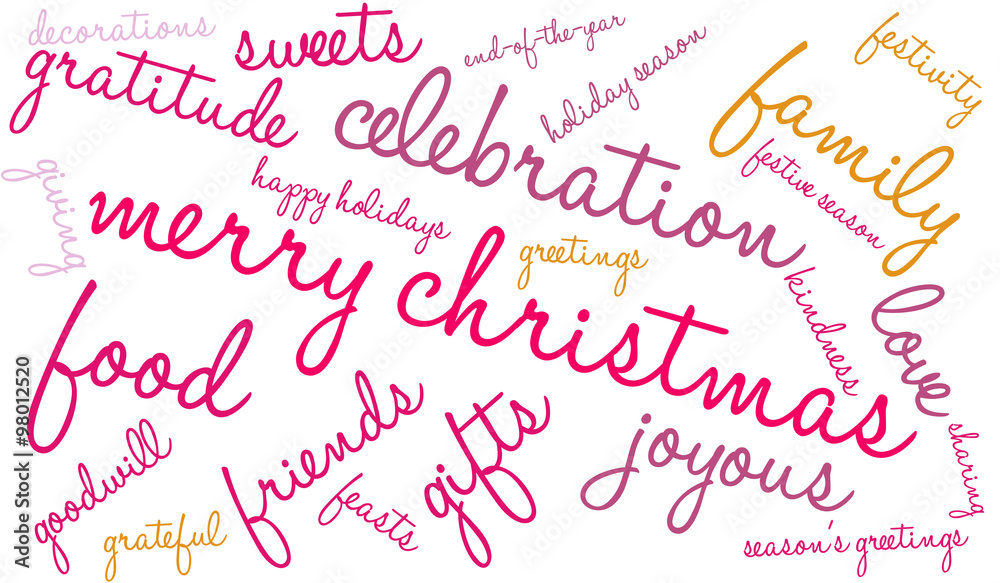 decorations
sweets
end-of-the-year
gratitude
celebration
holiday season
family
festivity
giving
happy holidays
festive season
merry christmas
greetings
kindness
love
food
friends
gifts
joyous
sharing
goodwill
grateful
feasts
season's greetings
Adobe Stock | #98012520
Adobe Stock